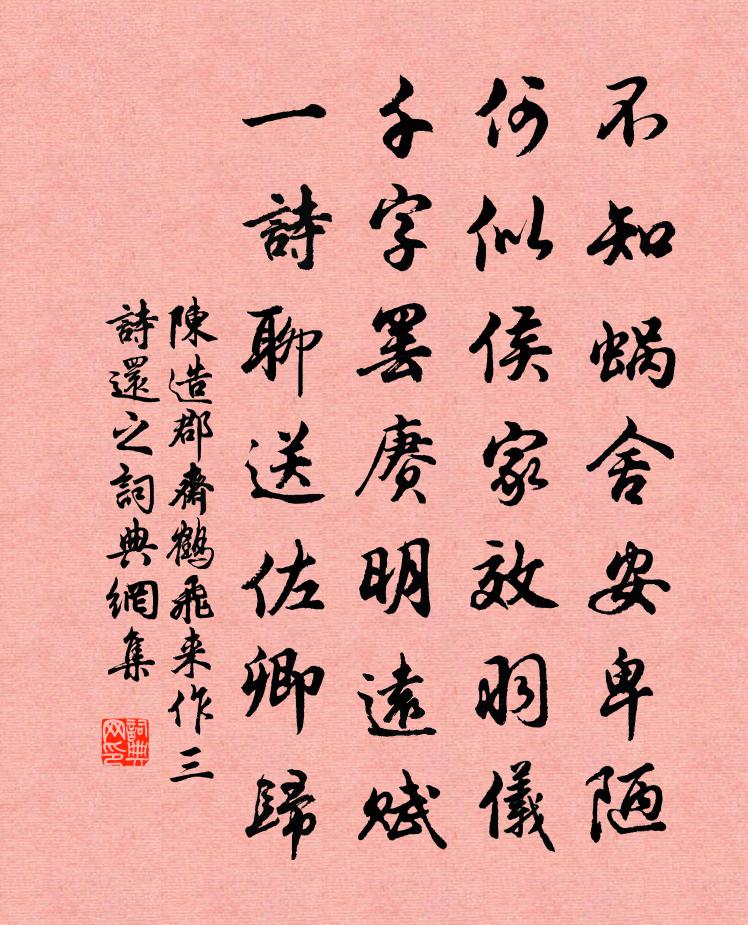 不知蝸舍安卑陋
何似侯家效羽儀
千字罢赓明遠赋
一詩聊送佐卿歸
陳造郡齋鶴飛来作三
詩還之詞典網集
詞典網印